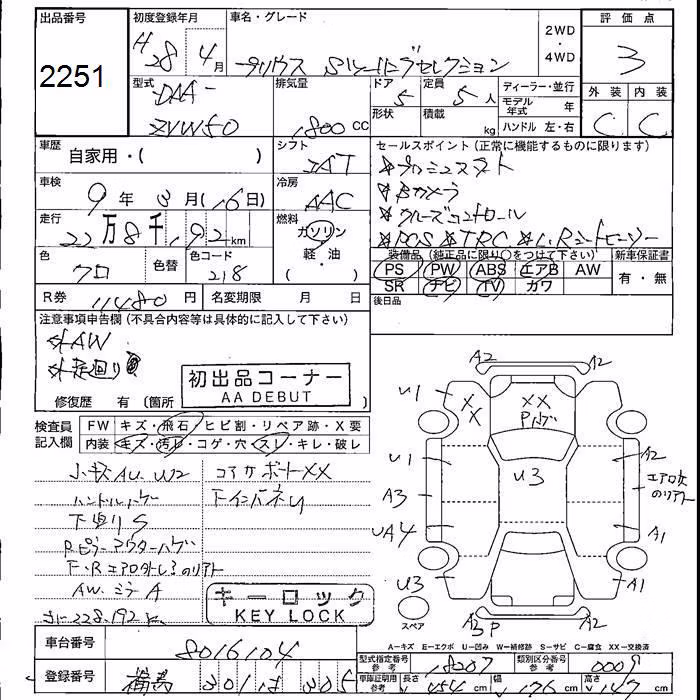 出品番号
2251
初度登録年月
H28 4月
車名・グレード
プリウス Sツーリングセレクション
2WD・4WD
評価点
3
外装 内装
C C
型式
DAA-
ZVW50
排気量
1800 CC
ドア 5
形状
定員 5人
積載 kg
ディーラー・並行
モデル年式 年
ハンドル 左・右
車歴
自家用・( )
シフト
IAT
セールスポイント(正常に機能するものに限ります)
☆プッシュスタート
☆Bカメラ
☆クルーズコントロール
☆PCS ☆TRC ☆L.Rシートヒーター
車検
9年3月(16日)
冷房
AAC
走行
22万8千192km
燃料
ガソリン
軽・油
( )
色
クロ
色替
色コード
218
装備品(純正品に限り〇をつけて下さい)
新車保証書
PS PW ABS エアB AW
SR ナビ TV カワ
有・無
後日品
R券 11480円
名変期限 月 日
注意事項申告欄(不具合内容等は具体的に記入して下さい)
外AW
外足廻り
初出品コーナー
AA DEBUT
修復歴 有(箇所
検査員記入欄
FW キズ・飛石・ヒビ割・リペア跡・X要
内装 キズ・汚れ・コゲ・穴・スレ・キレ・破レ
小キズAU. UW2
コアサポートXX
ハンドルハゲ
下廻りS
RピラーアウターハゲF・Rエアロ外レ
AW. ミラーA
キーロック
KEY LOCK
A2
A2
U1
XX
XX
Pハゲ
U1
U3
A2
A3
UA4
A1
U3
A1
スペア
A3P
A-キズ E-エクボ U-凹み W-補修跡 S-サビ C-腐食 XX-交換済
車台番号
8016104
登録番号
型式指定番号 参考
18207
類別区分番号 参考
0009
車庫証明用 参考
長さ 454cm
幅 176cm
高さ 147cm